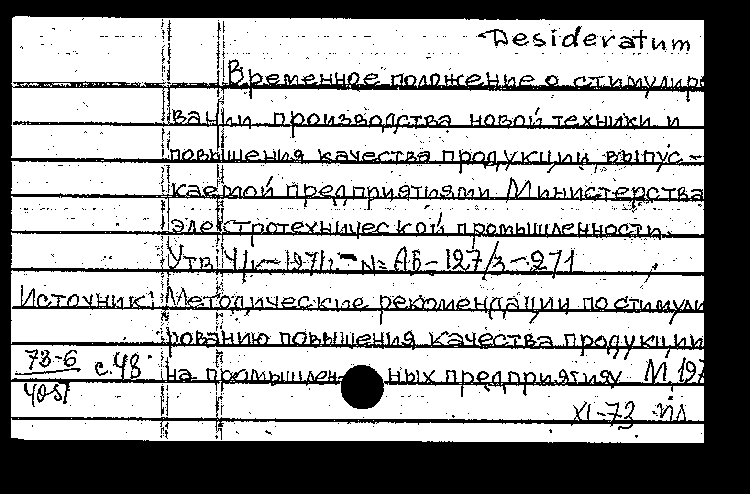 Desideratum
Временное положение о стимулиро
вании производства новой техники и
повышения качества продукции, выпус-
каемой предприятиями Министерства
электротехнической промышленности.
Утв. 4/X-1971г. - № АБ-127/3-271
Источник: Методические рекомендации по стимули
рованию повышения качества продукции
73-6 с.48 на промышленных предприятиях М, 197
40-51
XI-73